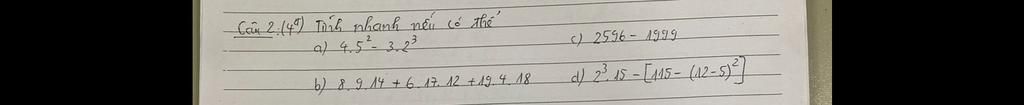 Câu 2: (4đ) Tính nhanh nếu có thể
a) 4.5² - 3.2³
c) 2596 - 1999
b) 8.9.14 + 6.17.12 + 19.4.18
d) 2³.15 - [115 - (12-5)²]